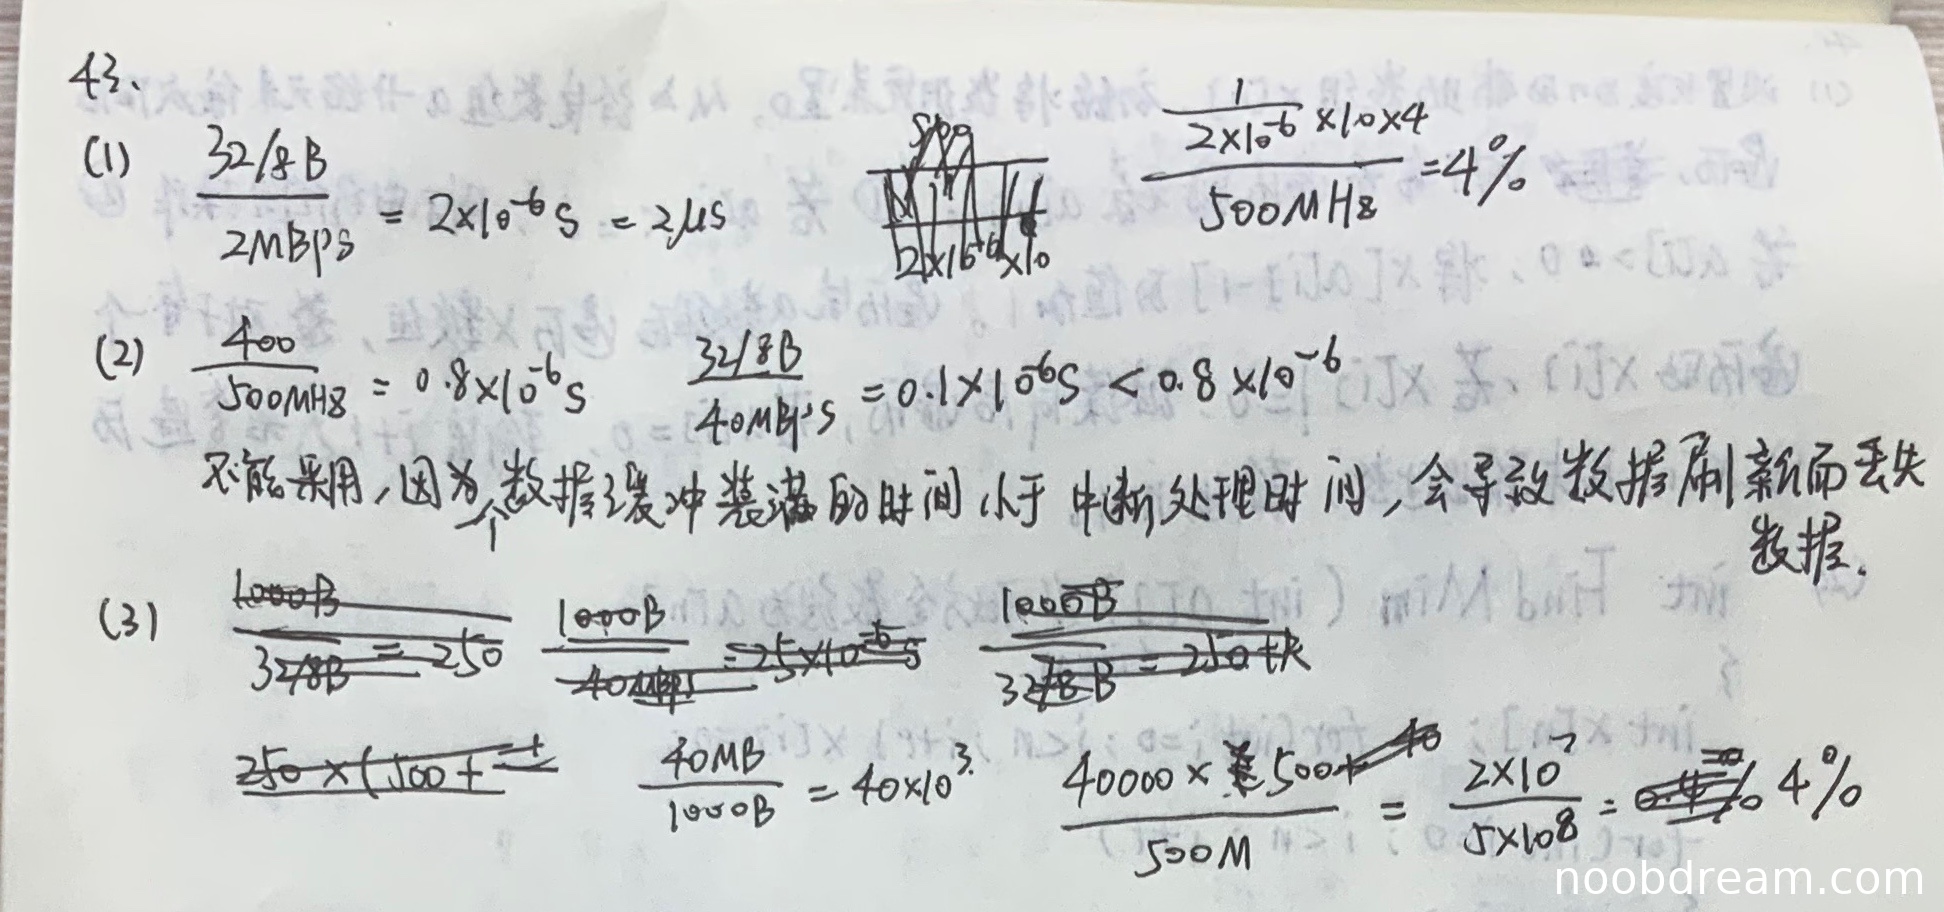 43.
(1) 32/8B / 2MBPS = 2×10⁻⁶ S = 2μs
1 / 2×10⁻⁶ ×10×4 / 500MHz = 4%
(2) 400 / 500MHz = 0.8×10⁻⁶ S 32/8B / 40MBPS = 0.1×10⁻⁶ S < 0.8×10⁻⁶
不能采用,因为个数据缓冲装满的时间小于中断处理时间,会导致数据刷新而丢失
数据.
(3) 1000B / 32/8B = 250 1000B / 40MBPS = 25×10⁻⁶ S 1000B / 32/8B = 250
250×(500+ 40MB / 1000B = 40×10³. 40000×500 / 500M = 2×10⁷ / 5×10⁸ = 4%
noobdream.com